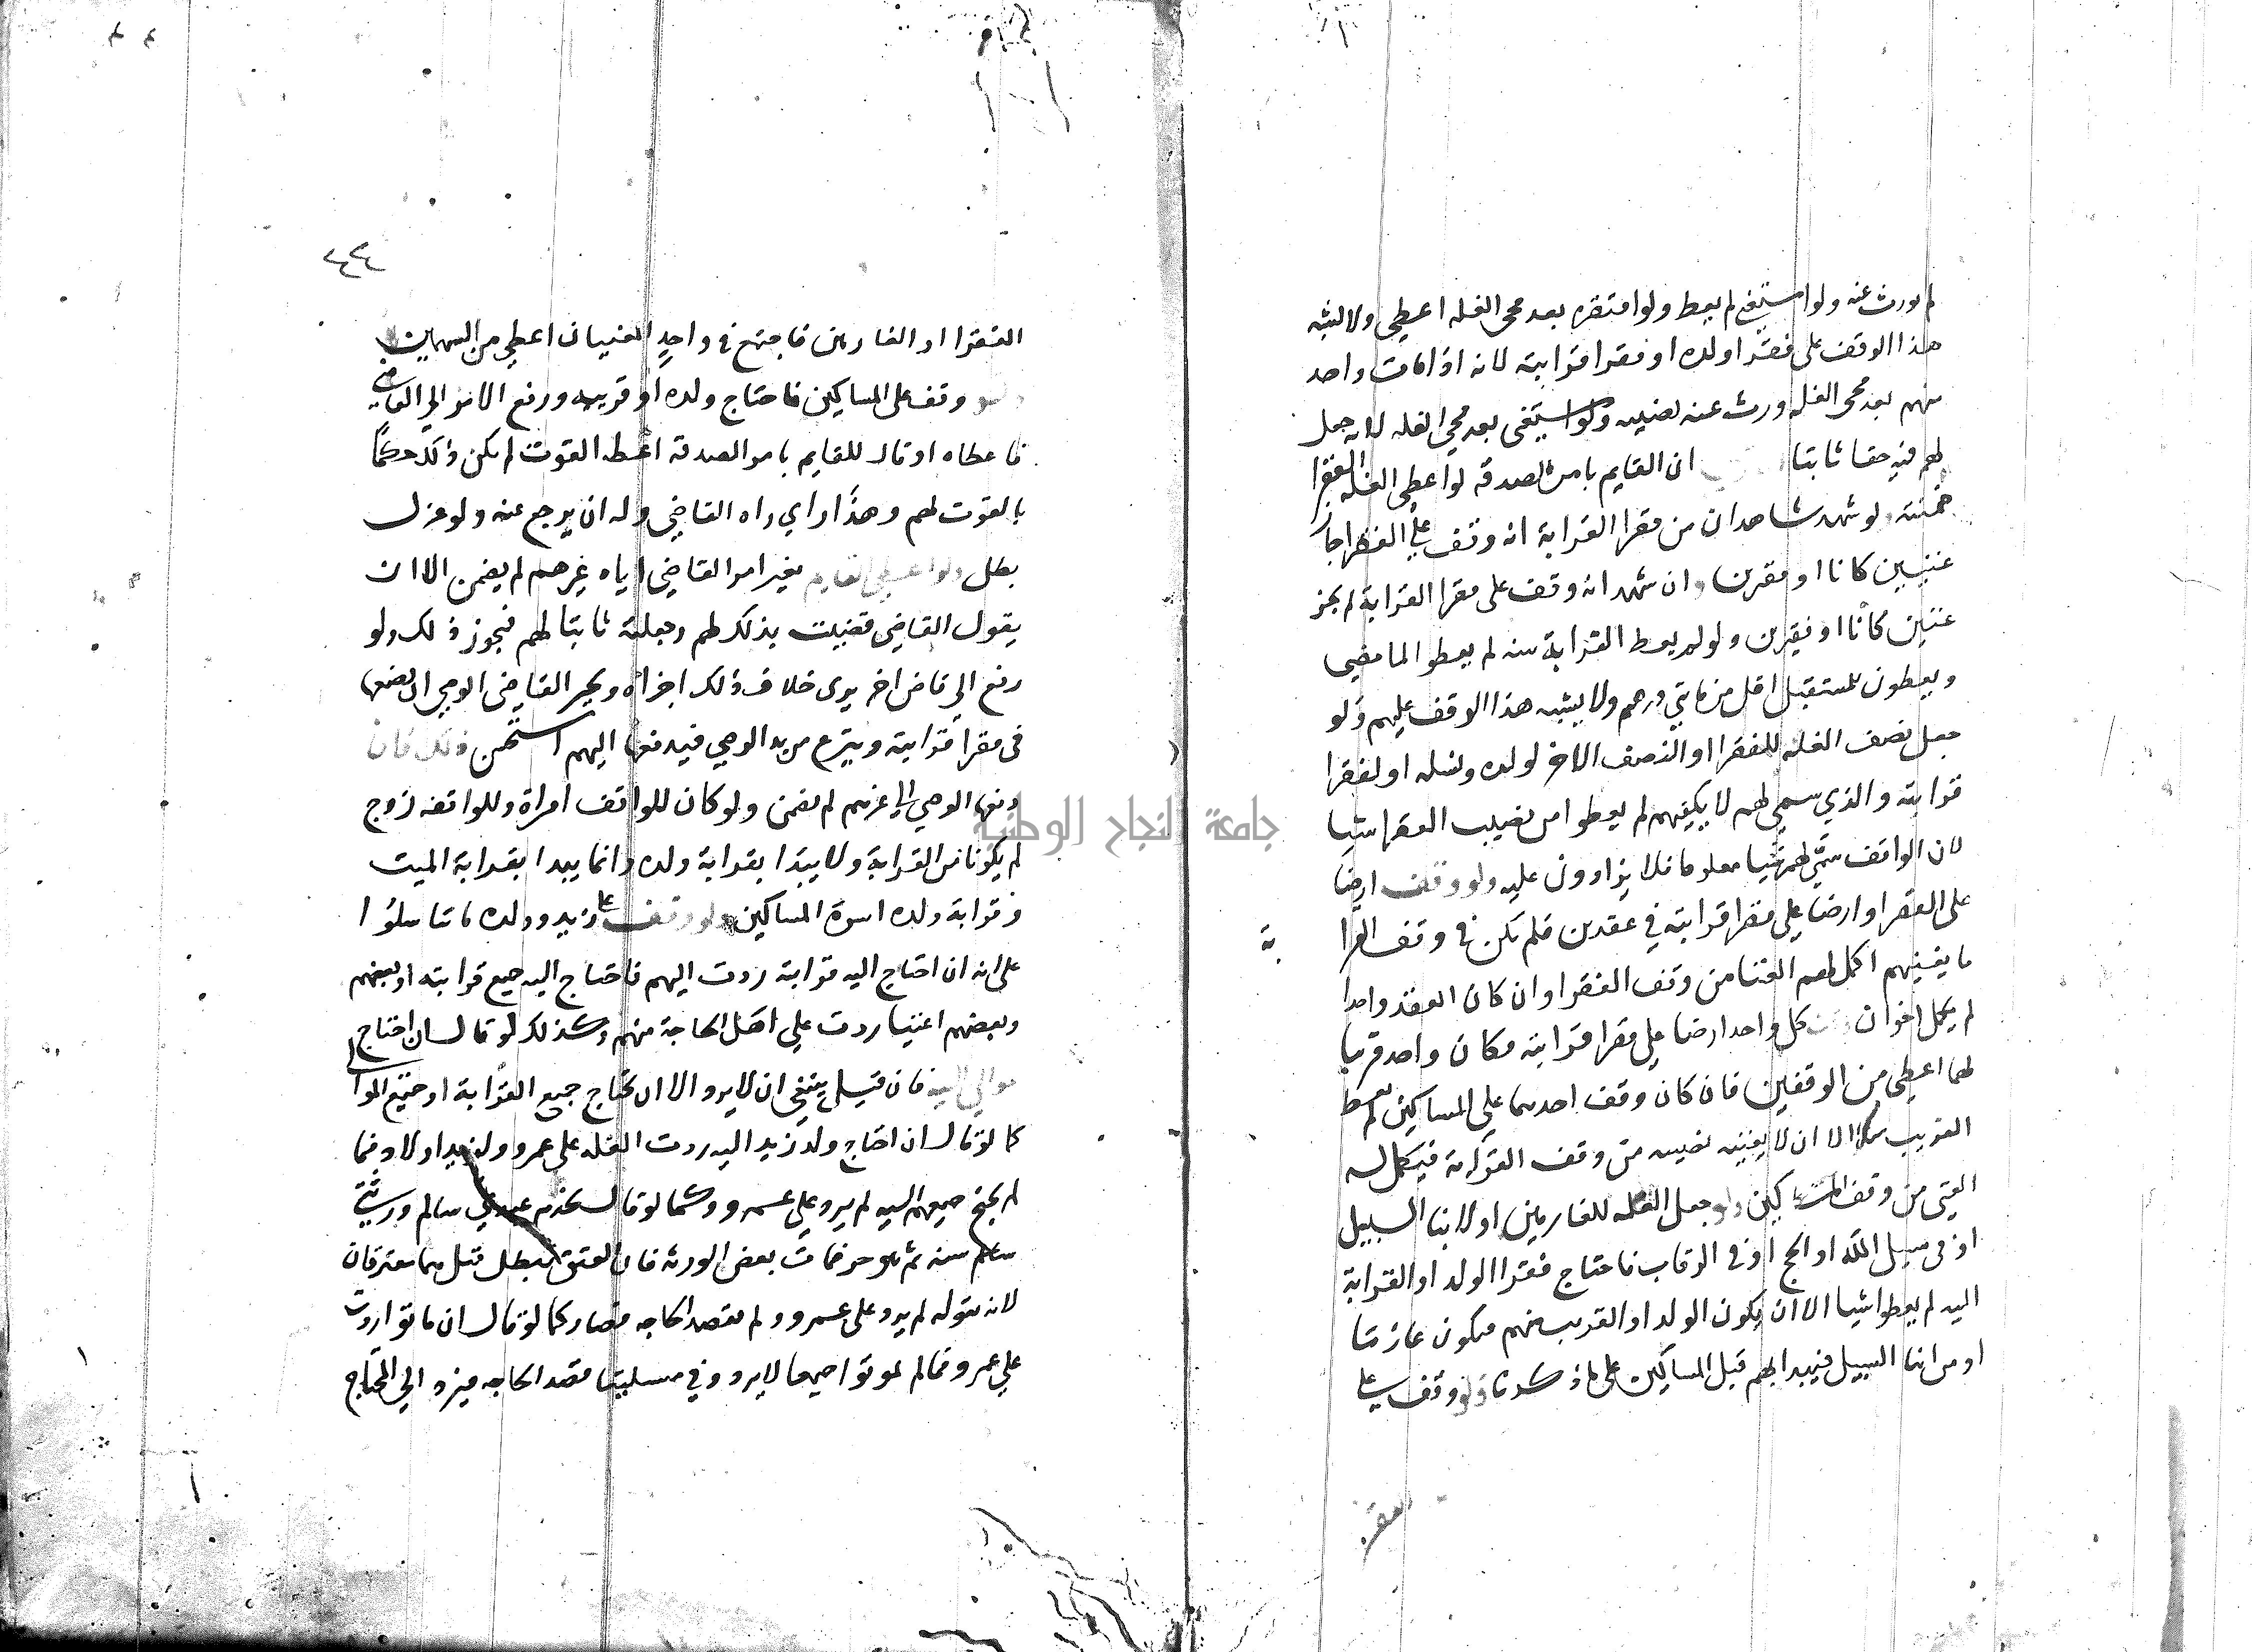 لم يورث عنه ولو استغنى لم يعط ولو افتقر بعد مجى الغله اعطي ولا يشبه
هذا الوقف على فقرا ولده او فقرا قرابته لانه اذا مات واحد
منهم بعد مجى الغله ورث عنه نصيبه ولو استغنى بعد مجي الغله لانه جعل
لهم فيه حقا ثابتا ان القايم بامر الصدقة لو اعطى الغله الفقرا
ضمنته ولو شهد شاهدان من فقرا القرابة انه وقف علي الفقرا جاز
غنيين كانا او فقيرين وان شهد انه وقف على فقرا القرابة لم يجز
غنيين كانا او فقيرين ولو لم يعط القرابة سنه لم يعطوا لما مضى
ويعطون للمستقبل اقل من مايتي درهم ولا يشبه هذا الوقف عليهم ولو
جعل نصف الغله للفقرا او النصف الاخر لولده ونسله او لفقرا
قرابته والذي سمي لهم لا يكفيهم لم يعطوا من نصيب الفقرا شيا
لان الواقف سمي لهم شيا معلوما فلا يزادون عليه ولو وقف ارضا
على الفقرا وارضا علي فقرا قرابته في عقدين فلم يكن في وقف القرا
بة
ما يغنيهم اكمل لهم الغنا من وقف الفقرا وان كان العقد واحدا
لم يكمل اخوان كل واحد ارضا علي فقرا قرابته فكان واحد قريبا
لهما اعطي من الوقفين فان كان وقف احدهما علي المساكين لم يعط
القريب الا ان لا يغنيه نصيبه من وقف القرابة فيكمل له
الغني من وقف المساكين ولو جعل الغله للغارمين او لابنا السبيل
او في سبيل الله او الحج او في الرقاب فاحتاج فقرا الولد او القرابة
اليه لم يعطوا شيا الا ان يكون الولد او القريب منهم فيكون غارما
او من ابنا السبيل فيبدا بهم قبل المساكين على ما ذكرنا ولو وقف علي
الفقرا
٤٤
الفقرا او الغارمين فاجتمع في واحد المعنيان اعطي من السهمين
ولو وقف على المساكين فاحتاج ولده او قريبه ورفع الامر الي القاضي
فاعطاه او قال للقايم بامر الصدقة اعطه القوت لم يكن ذلك حكما
بالقوت لهم وهذا راي راه القاضي وله ان يرجع عنه ولو عزل
بطل ولو اعطي القايم بغير امر القاضي اياه غيرهم لم يضمن الا ان
يقول القاضي قضيت بذلك لهم وجعلته ثابتا لهم فيجوز ذلك ولو
رفع الي قاض اخر يرى خلاف ذلك اجزاه ويجبر القاضي الوصي ان يضعها
في فقرا قرابته وينزع من يد الوصي فيدفعها اليهم استحسن ذلك فان
دفعها الوصي الي غيرهم لم يضمن ولو كان للواقف امراة وللواقفه زوج
لم يكونا من القرابة ولا يبدا بقرابة ولده وانما يبدا بقرابة الميت
وقرابة ولده اسوة المساكين ولو وقف علي زيد وولده ما تناسلوا
على انه ان احتاج اليه قرابته ردت اليهم فاحتاج اليه جميع قرابته او بعضهم
وبعضهم اغنيا ردت علي اهل الحاجة منهم وكذلك لو قال ان احتاج
موالي اليه فان قيل ينبغي ان لا يرد الا ان يحتاج جميع القرابة او جميع الموالي
كما لو قال ان احتاج ولد زيد اليه ردت الغله على عمرو ولزيد اولاد فما
لم يحتج جميعهم اليه لم يرد علي عمرو وكما لو قال يخدم عبدي سالم ورثتي
سالم سنه ثم هو حر فمات بعض الورثه فان العتق يبطل قيل هما مفترقان
لانه بقوله لم يرد على عمرو ولم يقصد الحاجه فصار كما لو قال ان ماتوا ردت
علي عمرو فما لم يموتوا جميعا لا يرد وفي مسلتنا قصد الحاجه فيرد الي المحتاج
جامعة النجاح الوطنية